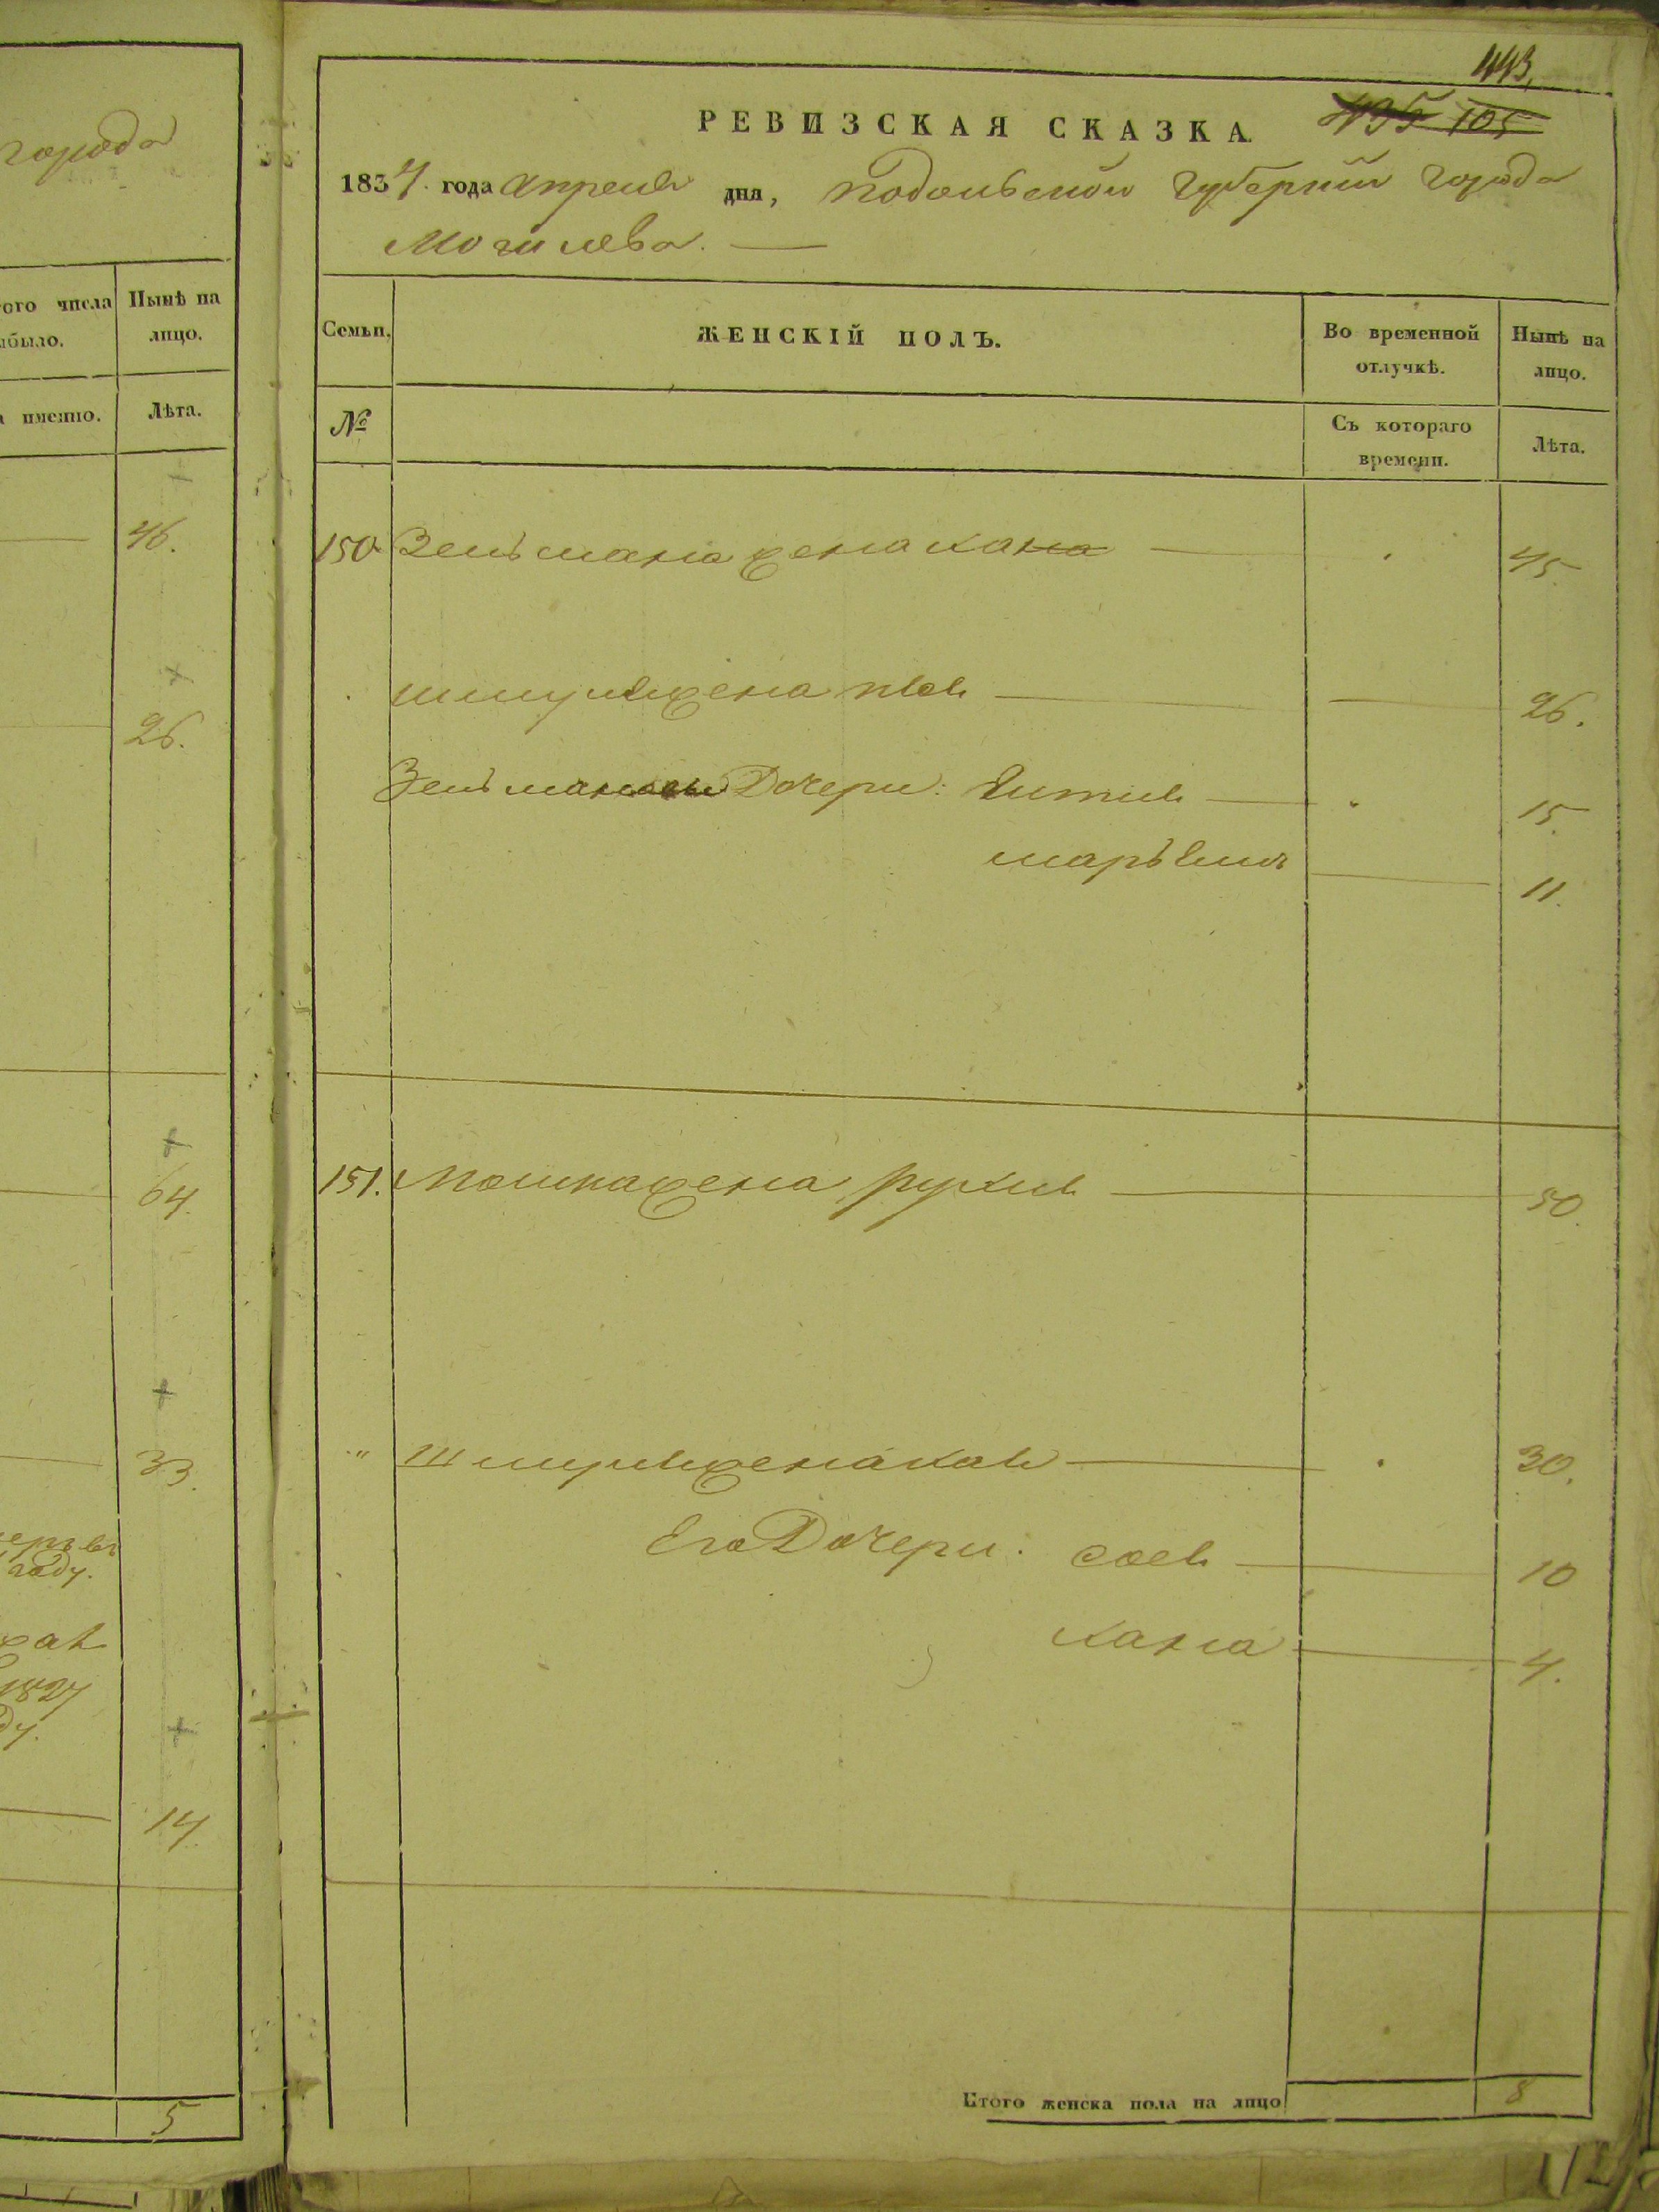 города
того числа
Нынѣ на
лицо.
выбыло.
а именно.
Лѣта.
46.
26.
64.
33.
году.
1827
14.
5
443,
РЕВИЗСКАЯ СКАЗКА.
105
1834. года апреля дня, Подольской Губернии города
Могилева.
Семьи.
ЖЕНСКІЙ ПОЛЪ.
Во временной
отлучкѣ.
Нынѣ на
лицо.
№
Съ котораго
времени.
Лѣта.
150 Зельмана жена хана 45.
шмуля жена пся 26.
Зельмановы Дочери: Битля 15.
марьям 11.
151. Мошка жена рухля 50.
" Шмуля жена хая 30.
Его Дочери: сося 10
хана 4.
Итого женска пола на лицо 8